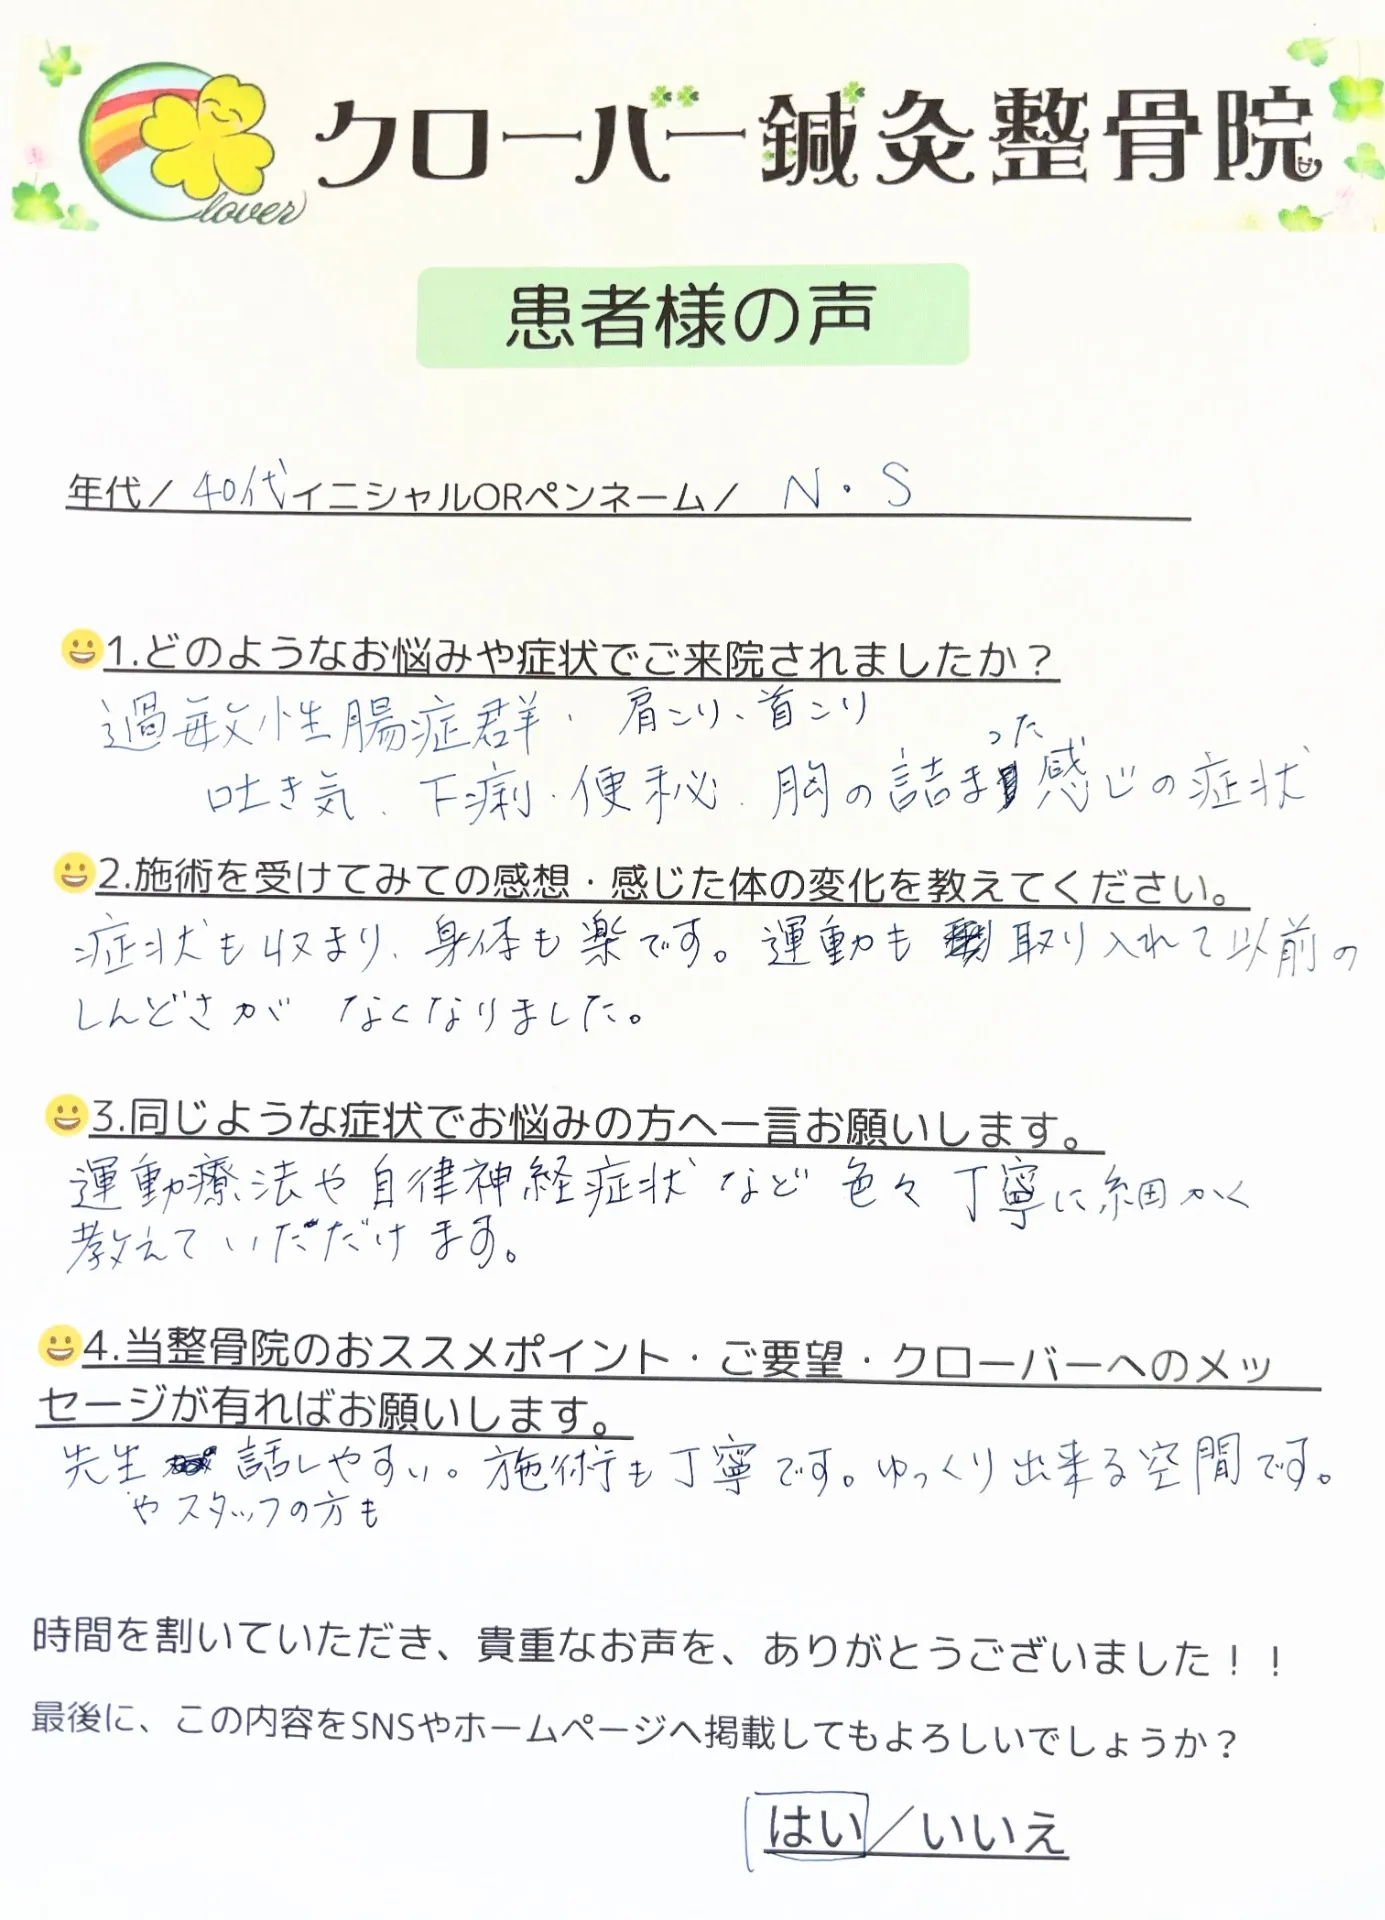 clover クローバー鍼灸整骨院
患者様の声
年代／ 40代 イニシャルORペンネーム／ N・S
1.どのようなお悩みや症状でご来院されましたか？
過敏性腸症群、肩こり、首こり
吐き気、下痢、便秘、胸の詰まった感じの症状
2.施術を受けてみての感想・感じた体の変化を教えてください。
症状も収まり、身体も楽です。運動も取り入れて以前の
しんどさが なくなりました。
3.同じような症状でお悩みの方へ一言お願いします。
運動療法や自律神経症状など色々丁寧に細かく
教えていただだけます。
4.当整骨院のおススメポイント・ご要望・クローバーへのメッ
セージが有ればお願いします。
先生やスタッフの方も話しやすい。施術も丁寧です。ゆっくり出来る空間です。
時間を割いていただき、貴重なお声を、ありがとうございました！！
最後に、この内容をSNSやホームページへ掲載してもよろしいでしょうか？
はい／いいえ